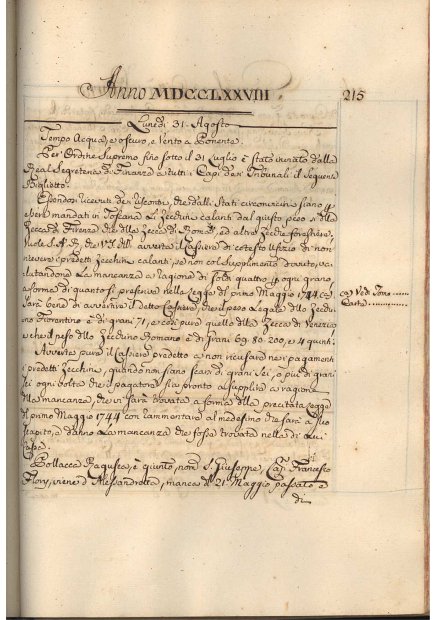 Anno MDCCLXXVIII. 215
Lunedì 31. Agosto
Tempo Acqua, e oscuro, e Vento a Ponente.
Per Ordine Supremo fino sotto il 31 Luglio è stato inviato dalla
Real Segreteria di Finanze a tutti i Capi de' Tribunali il seguente
Biglietto.
Essendosi che dalli Stati circonvicini siano
mandati in Toscana Zecchini calanti dal giusto peso sì della
Zecca di Firenze che della Zecca di Roma, ed altre Zecche forestiere,
Vuole S. A. R. che V.S. Ill. avverta il Cassiere di cotesto Ufizio di non
ricevere i predetti Zecchini calanti, se non col Supplimento dovuto, va-
lutandone la mancanza a ragione di soldi quattro per ogni grano,
a forma di quanto si prescrive nella Legge del primo Maggio 1744 (a)
Sarà bene di avvertire il detto Cassiere, che il peso Legale dello Zec-
chino Fiorentino è di grani 71, e così pure quello della Zecca di Venezia
e che il peso dello Zecchino Romano è di Grani 69. 80. 200, e 4 quinti.
Avverta pure il Cassiere predetto a non ricusare ne' pagamenti
i predetti Zecchini, quando non siano scarsi di grani sei, o più di grani
sei ogni volta che il pagatore sia pronto a supplire a ragione
della mancanza, che vi sarà trovata a forma della precitata Legge
del primo Maggio 1744 con rammentare al medesimo che sarà a suo
scapito, e danno la mancanza che fosse trovata nella di Lui
Cassa.
Pollacca Ragusea, è giunta, nom.
S. Giuseppe, Cap. Francesco
Flory, viene d'Alessandretta, manca dl 21. Maggio passato e
di
(a) Vedi Tomo
Carte